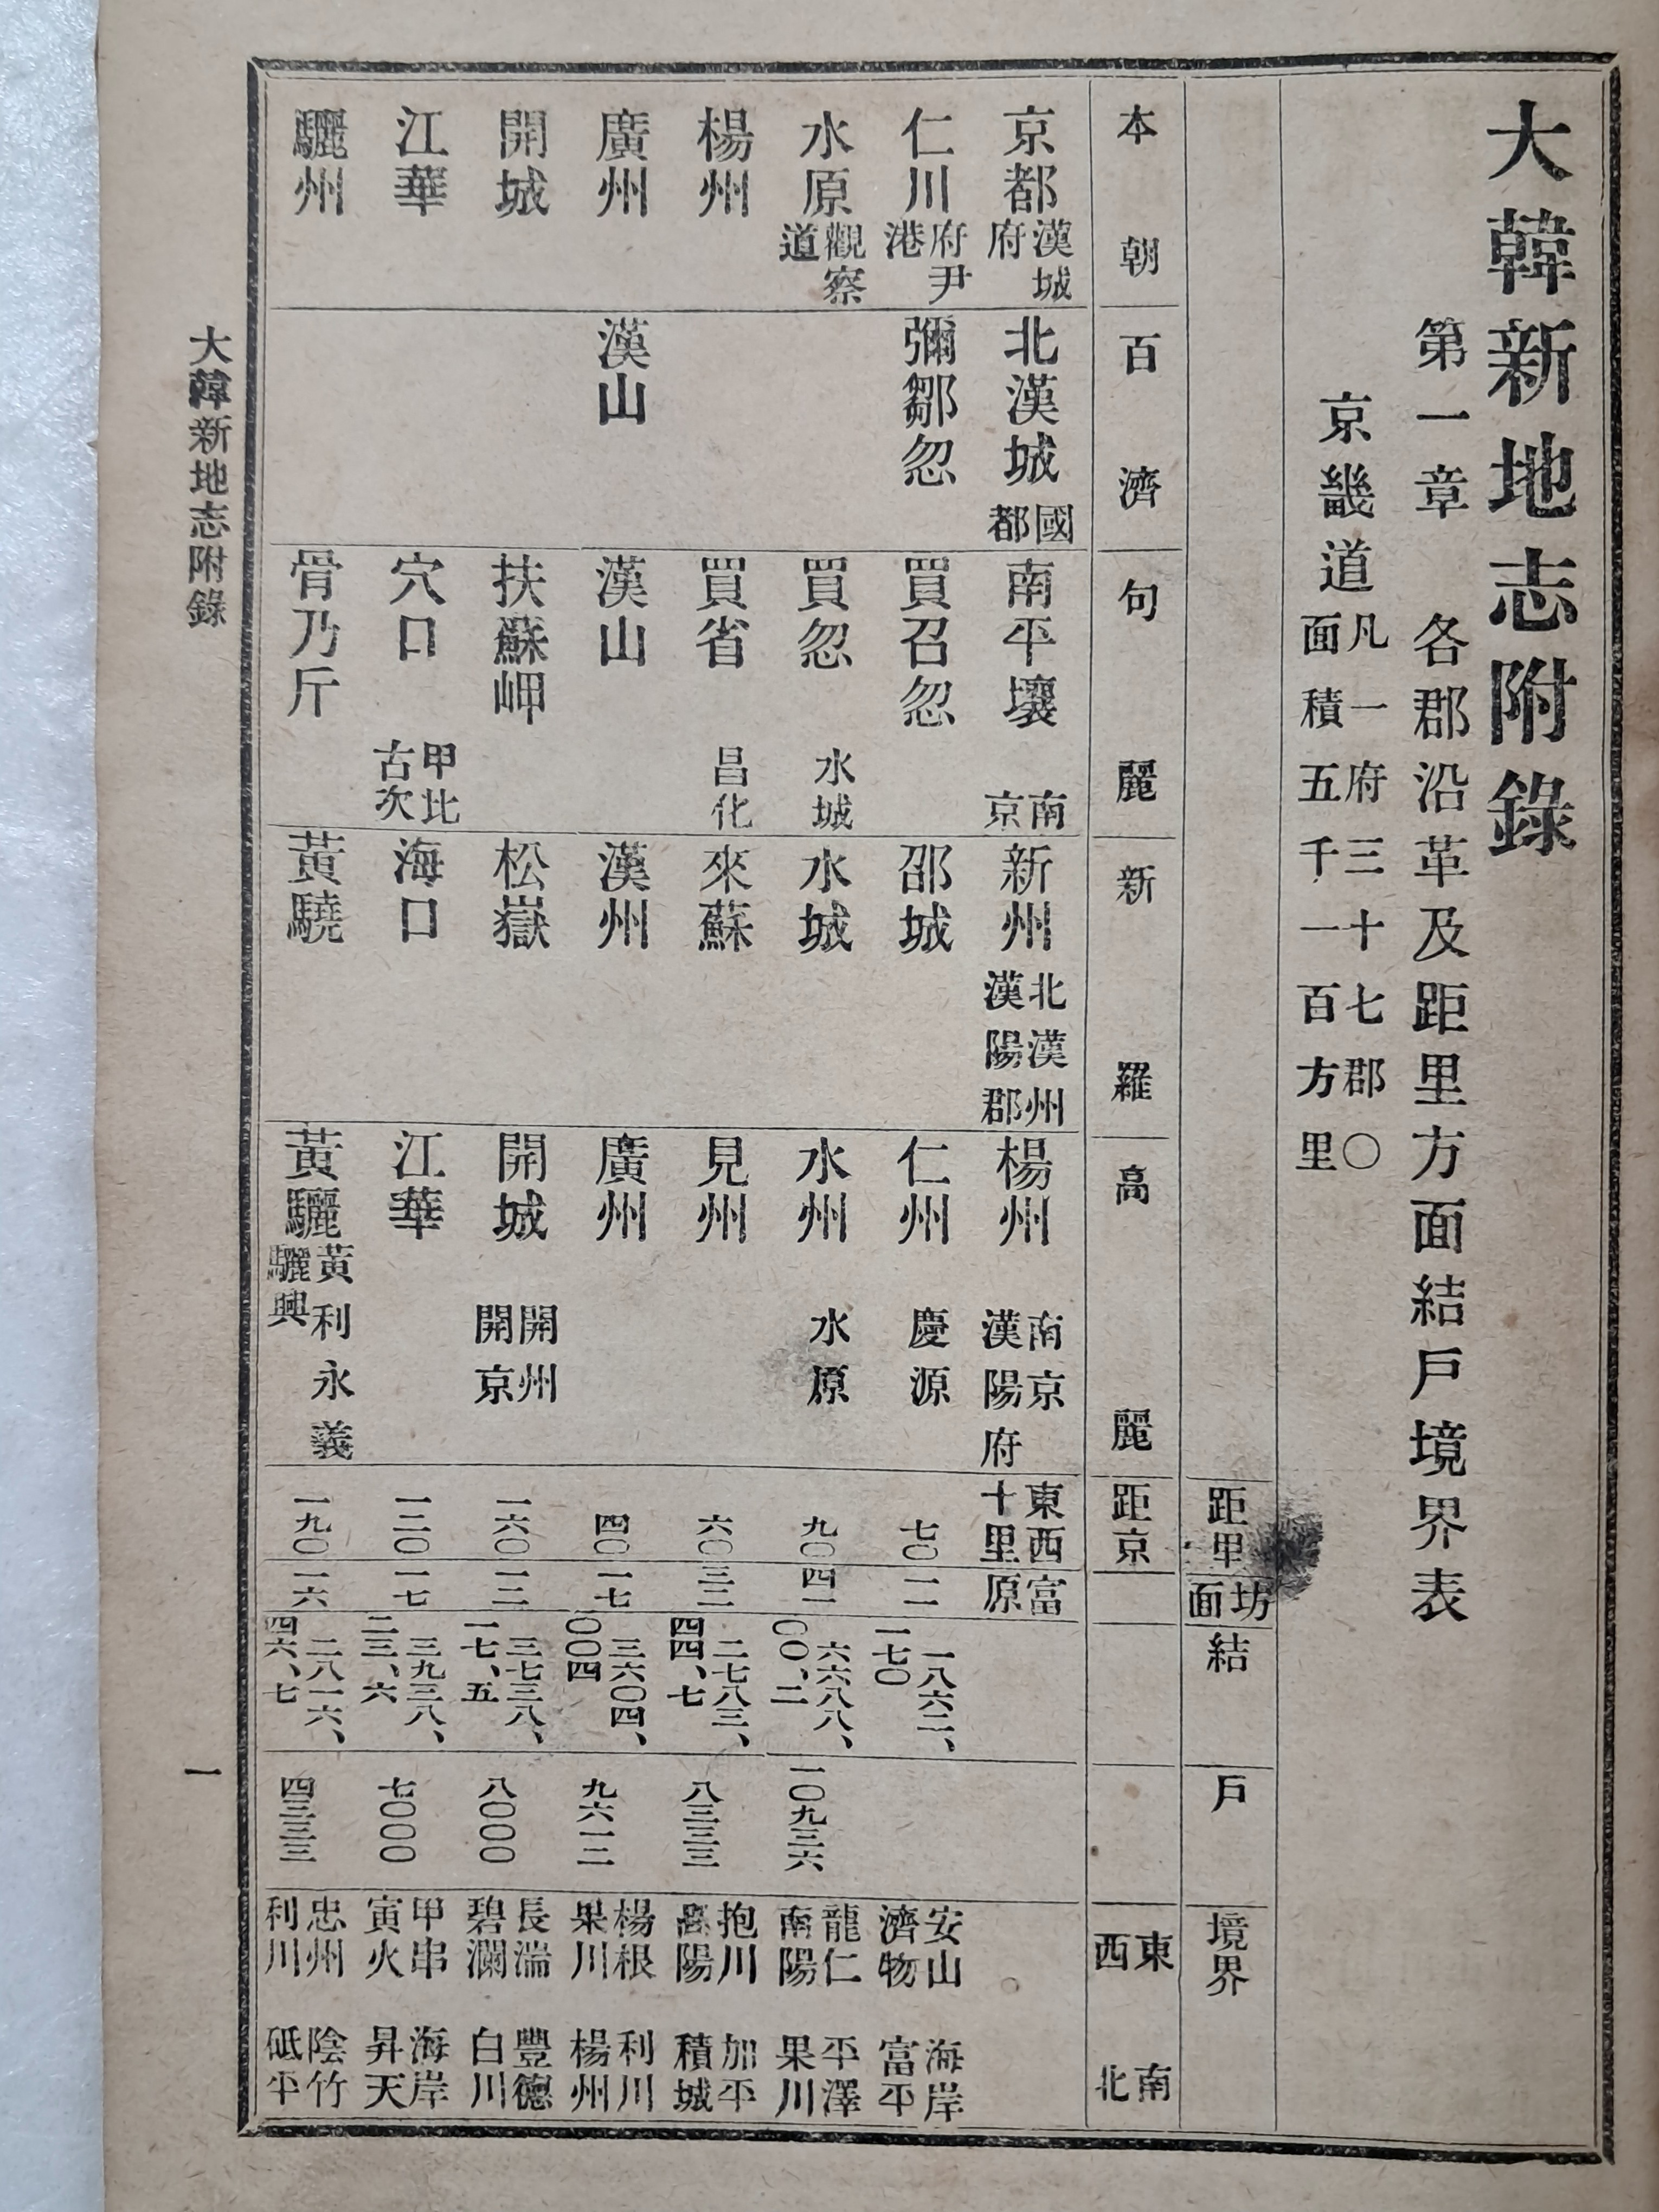 大韓新地志附錄
第一章 各郡沿革及距里方面結戶境界表
京畿道 凡一府三十七郡〇
面積五千一百方里
距里 坊面 結 戶 境界
本朝 百濟 句麗 新羅 高麗 距京 東西 南北
京都 漢城府 北漢城 國都 南平壤 南京 新州 北漢州 漢陽郡 楊州 南京 漢陽府 東西十里 富原
仁川 府尹港 彌鄒忽 買召忽 邵城 仁州 慶源 七〇 一一 一八六二、一七〇 安山 濟物 海岸 富平
水原 觀察道 買忽 水城 水城 水州 水原 九〇 四一 六六八八、〇〇、二 一〇九三六 龍仁 南陽 平澤 果川
楊州 買省 昌化 來蘇 見州 六〇 三二 二七八三、四四、七 八三三三 抱川 高陽 加平 積城
廣州 漢山 漢山 漢州 廣州 四〇 一七 三六〇四、〇〇四 九六一二 楊根 果川 利川 楊州
開城 扶蘇岬 松嶽 開城 開州 開京 一六〇 一二 三七三八、一七、五 八〇〇〇 長湍 碧瀾 豐德 白川
江華 穴口 甲比古次 海口 江華 一二〇 一七 三九三八、二三、六 七〇〇〇 甲串 寅火 海岸 昇天
驪州 骨乃斤 黃驍 黃驪 黃利 永義 驪興 一九〇 一六 二八一六、四六、七 四三三三 忠州 利川 陰竹 砥平
大韓新地志附錄
一